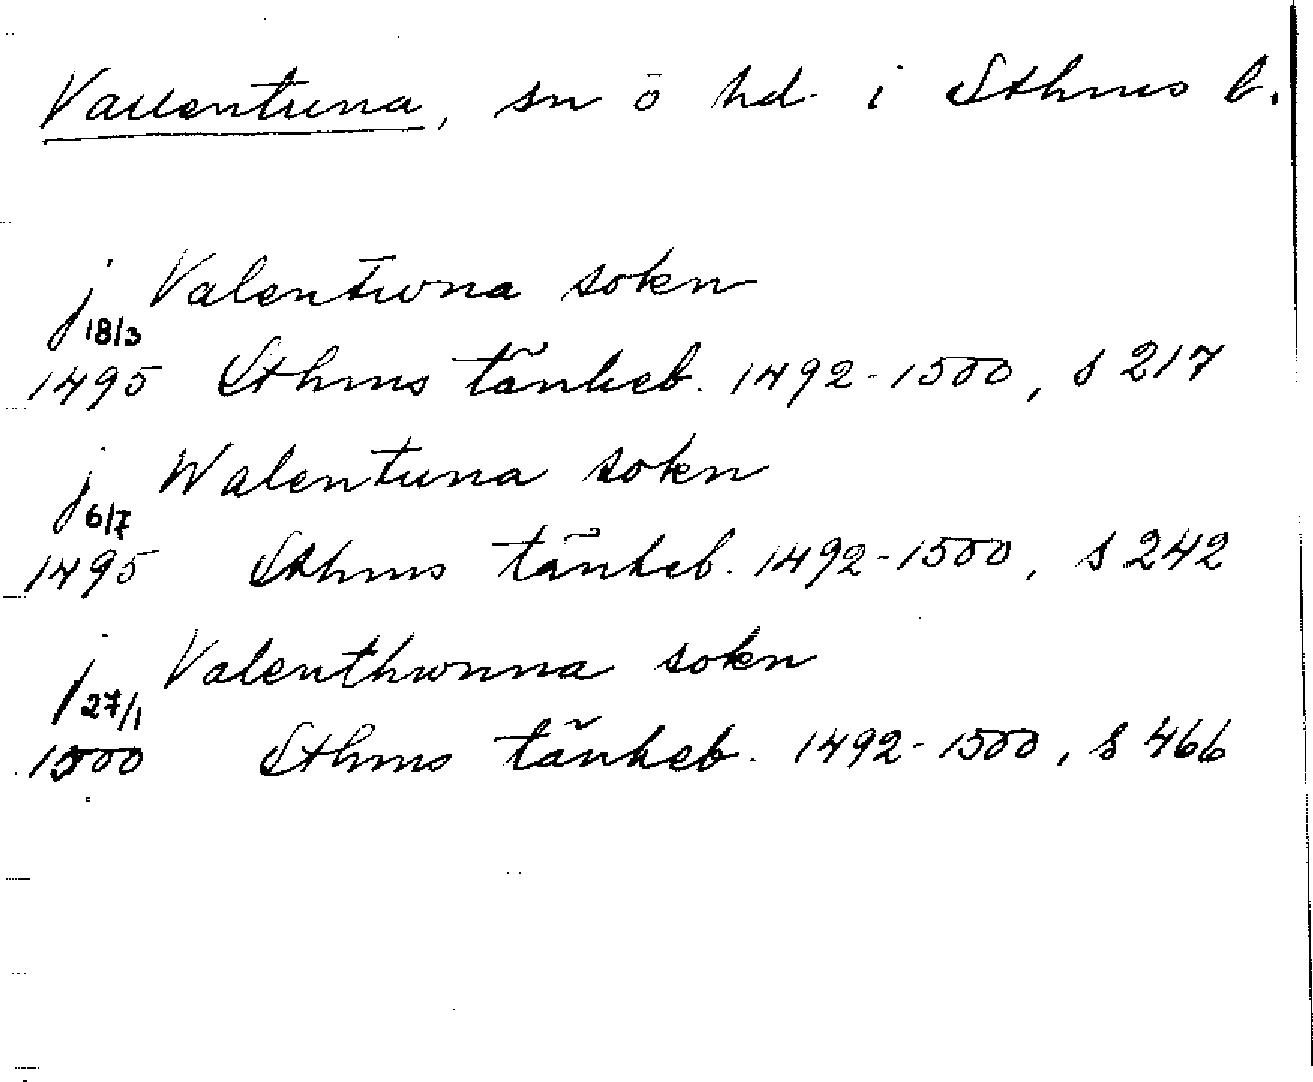 Vallentuna, sn o hd. i Sthms l.
j Valentwna sokn
18/3
1495 Sthms tänkeb. 1492-1500, s 217
j Walentuna sokn
6/7
1495 Sthms tänkeb. 1492-1500, s 242
j Valenthwnna sokn
27/1
1500 Sthms tänkeb. 1492-1500, s 466